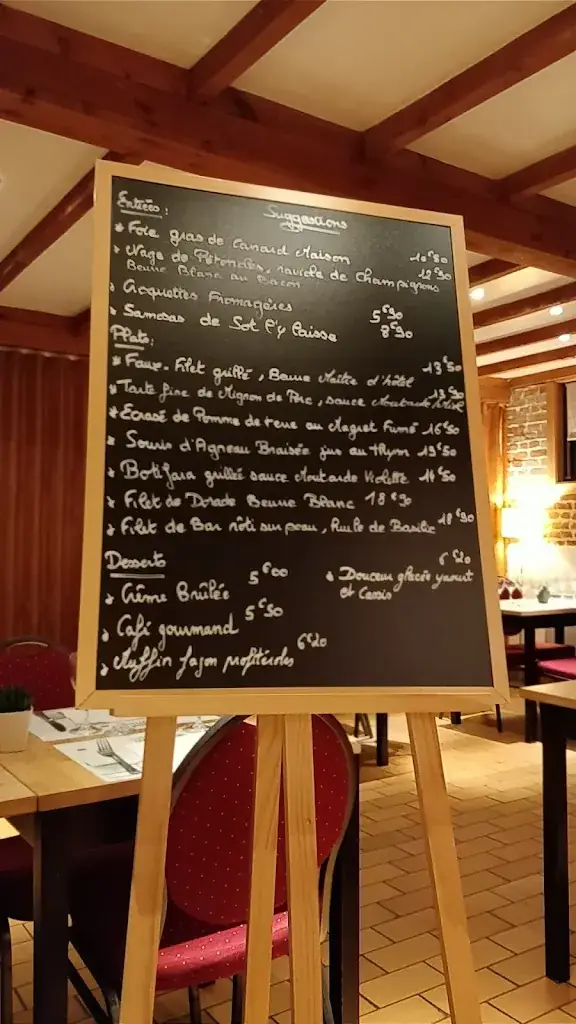 Suggestions
Entrées :
* Foie gras de Canard Maison 10€50
* Nage de Pétoncles, raviole de Champignons 12€90
Beurre Blanc au Bacon
* Acquettes Fromagères 5€90
* Samosas de Sot l'y laisse 8€90
Plats :
* Faux-Filet grillé, Beurre Maître d'hôtel 13€50
* Tarte fine de Mignon de Porc, sauce Moutarde/Miel 13€90
* Ecrasé de Pomme de terre au Magret Fumé 16€50
* Souris d'Agneau Braisée jus au thym 19€50
* Botifara grillé sauce Moutarde Violette 14€50
* Filet de Dorade Beurre Blanc 18€90
* Filet de Bar rôti sur peau, Huile de Basilic 18€90
Desserts
* Crème Brûlée 5€00
* Café gourmand 5€50
* Muffin façon profiteroles 6€20
* Douceur glacée yaourt 6€20
et Cassis